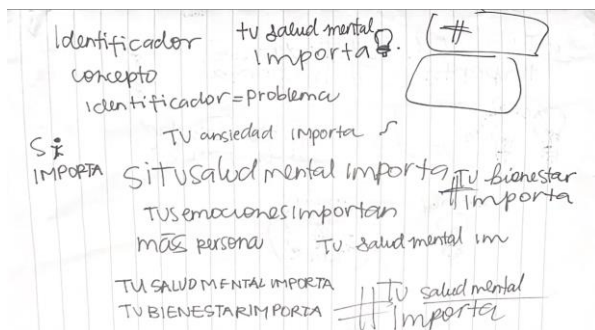 Identificador
concepto
identificador=problema
tu salud mental
importa
#
TU ansiedad importa
Sí
IMPORTA
situsalud mental importa
#TU bienestar
importa
TUS emociones importan
más persona
TU salud mental im
TU SALUD MENTAL IMPORTA
TU BIENESTAR IMPORTA
#TU salud mental
importa